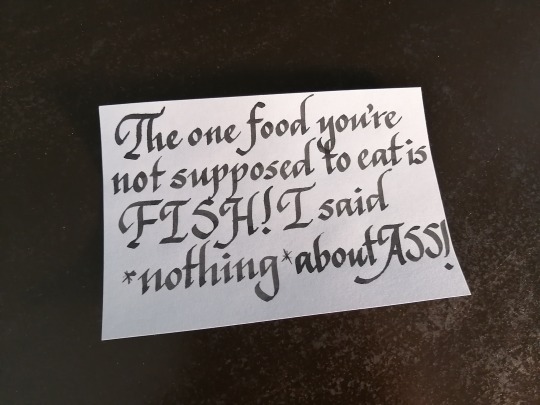 The one food you're
not supposed to eat is
FISH! I said
*nothing* about ASS!